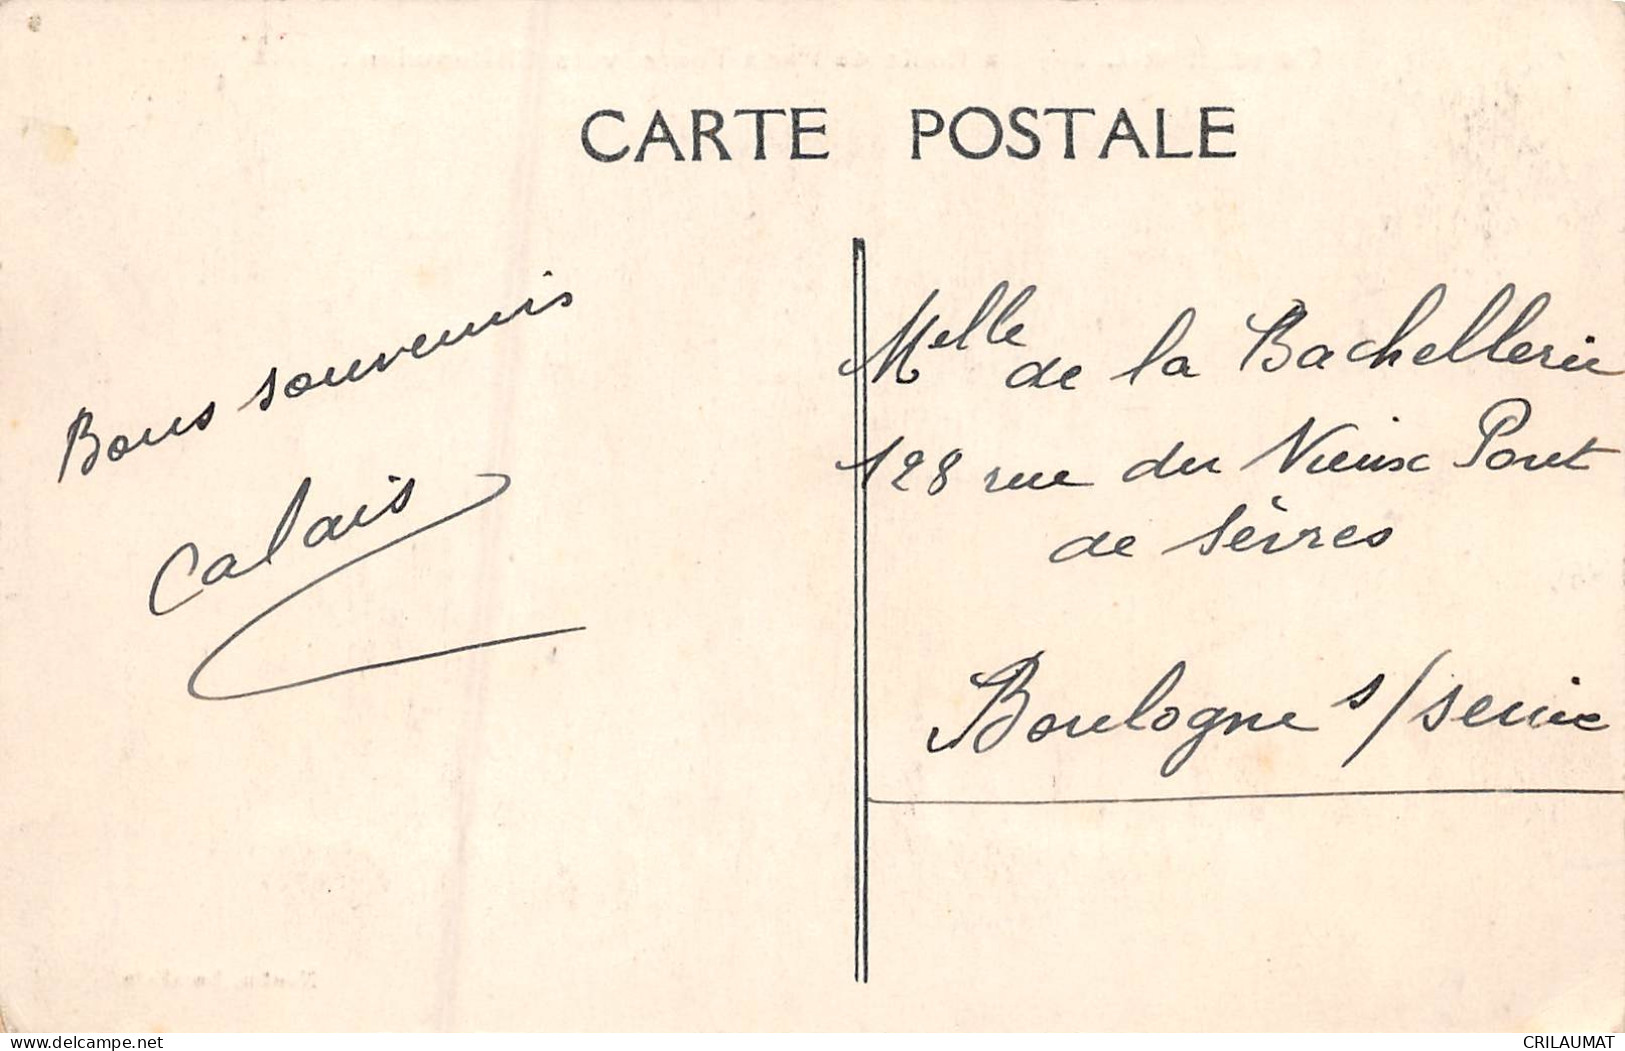 CARTE POSTALE
Bons souvenirs
Calais
Melle de la Bachellerie
128 rue du Vieux Pont
de Sèvres
Boulogne s/seine
www.delcampe.net
CRILAUMAT